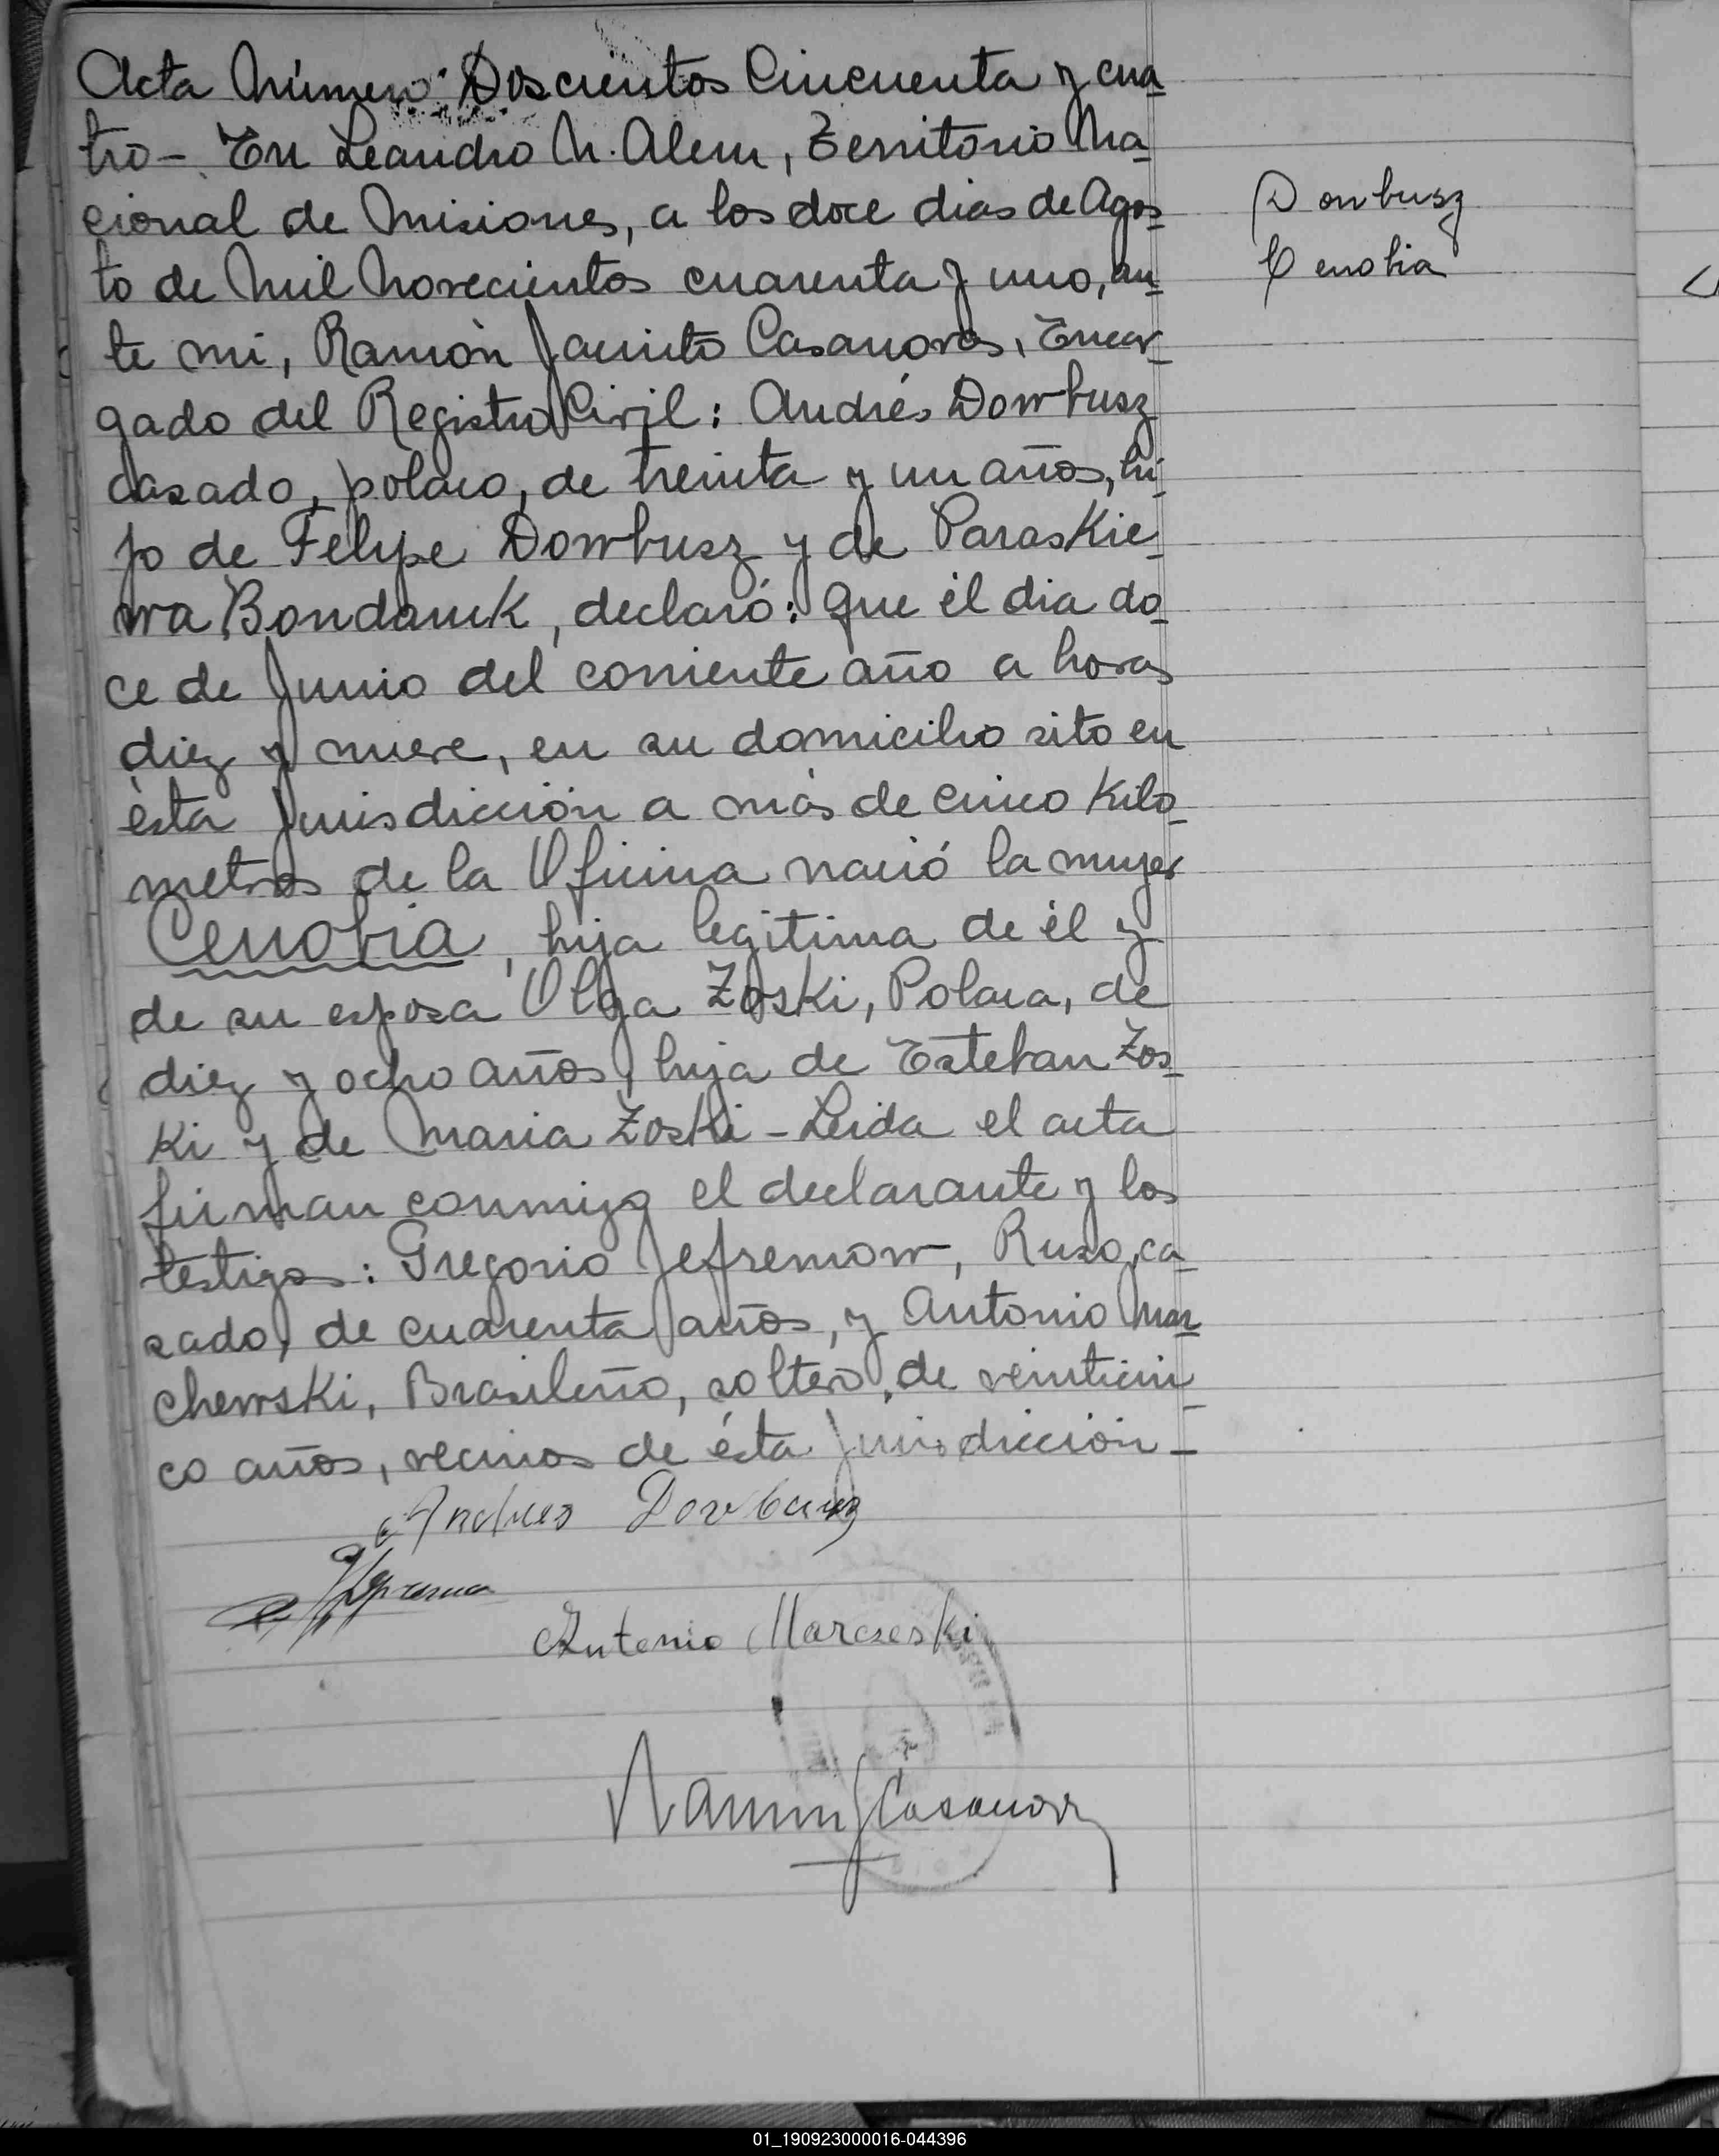 Acta Número Doscientos Cincuenta y cua-
tro - En Leandro N. Alem, Territorio Na-
cional de Misiones, a los doce dias de Agos-
to de Mil Novecientos cuarenta y uno, an-
te mi, Ramón Jacinto Casanova, Encar-
gado del Registro Civil: Andrés Dowbusz
casado, polaco, de treinta y un años, hi-
jo de Felipe Dowbusz y de Paraskie-
wa Bondaruk, declaró: Que él dia do-
ce de Junio del corriente año a horas
diez y nueve, en su domicilio sito en
ésta Jurisdicción a más de cinco Kilo-
metros de la Oficina nació la mujer
Cenobia, hija legitima de él y
de su esposa Olga Zoski, Polaca, de
diez y ocho años, hija de Esteban Zos-
ki y de Maria Zoski - Leida el acta
firman conmigo el declarante y los
testigos: Gregorio Jefremow, Ruso, ca-
sado, de cuarenta años, y Antonio Mar-
chewski, Brasileño, soltero, de veinticin-
co años, vecinos de ésta Jurisdicción -
Andres Dowbusz
Antonio Marczeski
Ramon J Casanova
Dowbusz
Cenobia
01_190923000016-044396